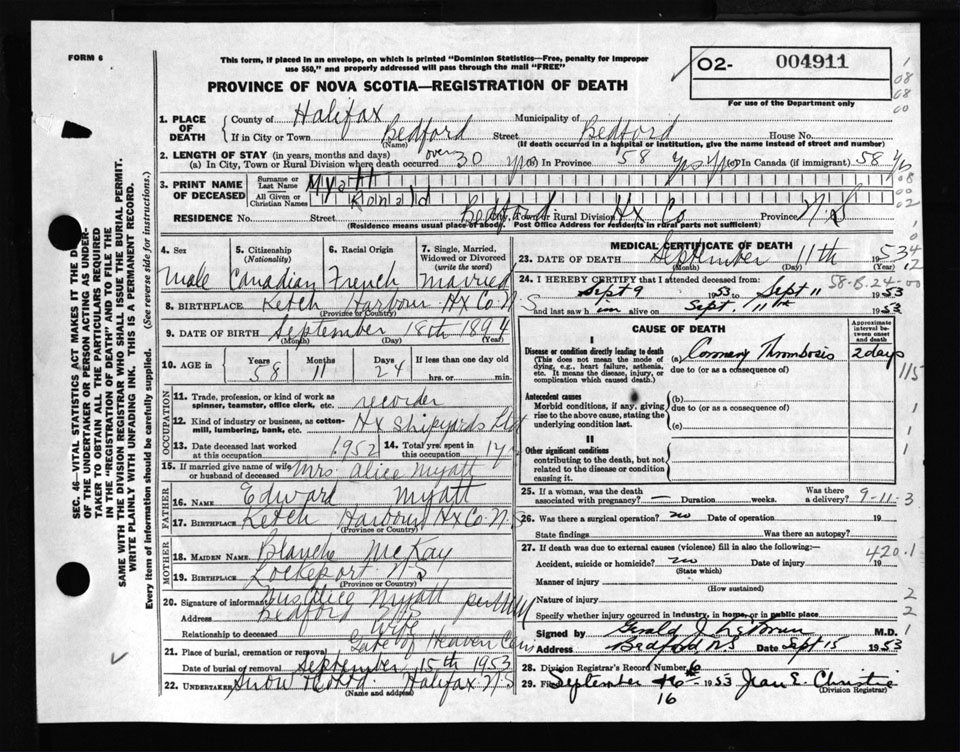 FORM 6
This form, if placed in an envelope, on which is printed "Dominion Statistics—Free, penalty for improper
use $50," and properly addressed will pass through the mail "FREE"
O2- 004911
For use of the Department only
PROVINCE OF NOVA SCOTIA—REGISTRATION OF DEATH
1. PLACE OF DEATH { County of Halifax Municipality of
If in City or Town Bedford Street Bedford House No.
(Name) (If death occurred in a hospital or institution, give the name instead of street and number)
2. LENGTH OF STAY (in years, months and days)
(a) In City, Town or Rural Division where death occurred over 30 yrs (b) In Province 58 yrs (c) In Canada (if immigrant) 58 yrs
3. PRINT NAME OF DECEASED { Surname or Last Name Myatt
All Given or Christian Names Ronald
RESIDENCE No. Street Bedford City, Town or Rural Division Hx Co Province N.S
(Residence means usual place of abode. Post Office Address for residents in rural parts not sufficient)
4. Sex 5. Citizenship (Nationality) 6. Racial Origin 7. Single, Married, Widowed or Divorced (write the word)
Male Canadian French Married
8. BIRTHPLACE Ketch Harbour Hx Co. N.S
(Province or Country)
9. DATE OF BIRTH September 18th 1894
(Month) (Day) (Year)
10. AGE in { Years 58 Months 11 Days 24 If less than one day old
hrs. or min.
OCCUPATION
11. Trade, profession, or kind of work as
spinner, teamster, office clerk, etc. recorder
12. Kind of industry or business, as cotton-
mill, lumbering, bank, etc. Hx Shipyards Ltd
13. Date deceased last worked at this occupation 1952 14. Total yrs. spent in this occupation
15. If married give name of wife or husband of deceased Mrs. Alice Myatt
FATHER
16. NAME Edward Myatt
17. BIRTHPLACE Ketch Harbour Hx Co. N.S
(Province or Country)
MOTHER
18. MAIDEN NAME Blanche McKay
19. BIRTHPLACE Lockeport N.S
(Province or Country)
20. Signature of informant Mrs Alice Myatt per
Address Bedford N.S
Relationship to deceased Wife
21. Place of burial, cremation or removal Gate of Heaven Cem
Date of burial or removal September 15th 1953
22. Undertaker Snow & Co Ltd. Halifax N.S
(Name and address)
MEDICAL CERTIFICATE OF DEATH
23. DATE OF DEATH September 11th 1953
(Month) (Day) (Year)
24. I HEREBY CERTIFY that I attended deceased from: 58-8-24-00
Sept 9 1953 to Sept 11 1953
and last saw him alive on Sept. 11th 1953
CAUSE OF DEATH
Approximate interval between onset and death
I
Disease or condition directly leading to death (a) Coronary Thrombosis 2 days
(This does not mean the mode of dying, e.g., heart failure, asthenia, etc. It means the disease, injury, or complication which caused death.)
due to (or as a consequence of)
Antecedent causes (b)
Morbid conditions, if any, giving rise to the above cause, stating the underlying condition last.
due to (or as a consequence of)
(c)
II
Other significant conditions
contributing to the death, but not related to the disease or condition causing it.
25. If a woman, was the death associated with pregnancy? — Duration weeks. Was there a delivery? 9-11-3
26. Was there a surgical operation? no Date of operation 19
State findings Was there an autopsy?
27. If death was due to external causes (violence) fill in also the following:— 420.1
Accident, suicide or homicide? no Date of injury 19
(State which)
Manner of injury
(How sustained)
Nature of injury
Specify whether injury occurred in industry, in home, or in public place
Signed by M.D.
Address Bedford NS Date Sept 15 1953
28. Division Registrar's Record Number 6
29. Filed September 16 1953 Jean E. Christie
16 (Division Registrar)
SEC. 46—VITAL STATISTICS ACT MAKES IT THE DUTY
OF THE UNDERTAKER OR PERSON ACTING AS UNDER-
TAKER TO OBTAIN ALL THE PARTICULARS REQUIRED
IN THE "REGISTRATION OF DEATH" AND TO FILE THE
SAME WITH THE DIVISION REGISTRAR WHO SHALL ISSUE THE BURIAL PERMIT.
WRITE PLAINLY WITH UNFADING INK. THIS IS A PERMANENT RECORD.
Every item of information should be carefully supplied. (See reverse side for instructions.)